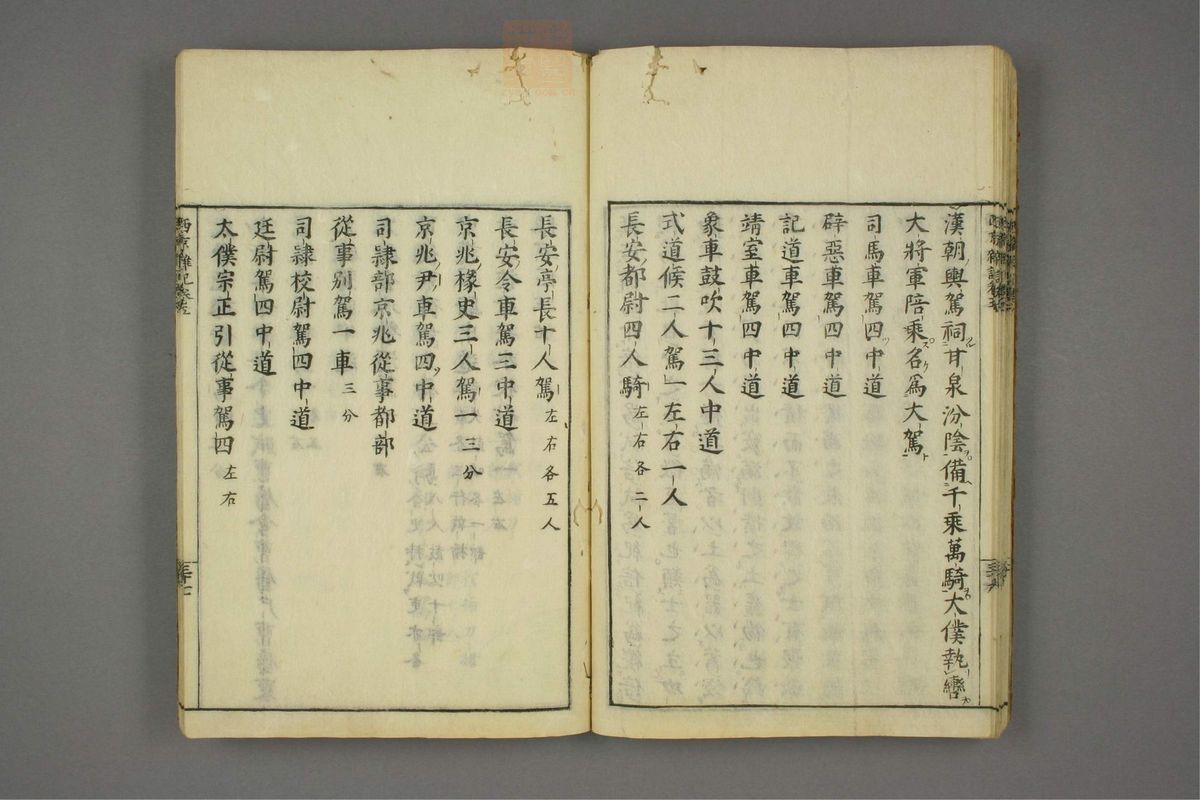 漢朝輿駕祠甘泉汾陰備千乘萬騎大僕執轡
大將軍陪乘名爲大駕
司馬車駕四中道
辟惡車駕四中道
記道車駕四中道
靖室車駕四中道
象車鼓吹十三人中道
式道候二人駕一左右一人
長安都尉四人騎左右各二人
長安亭長十人駕左右各五人
長安令車駕三中道
京兆掾史三人駕一三分
京兆尹車駕四中道
司隷部京兆從事都部
從事別駕一車三分
司隷校尉駕四中道
廷尉駕四中道
太僕宗正引從事駕四左右
西京雜記卷五